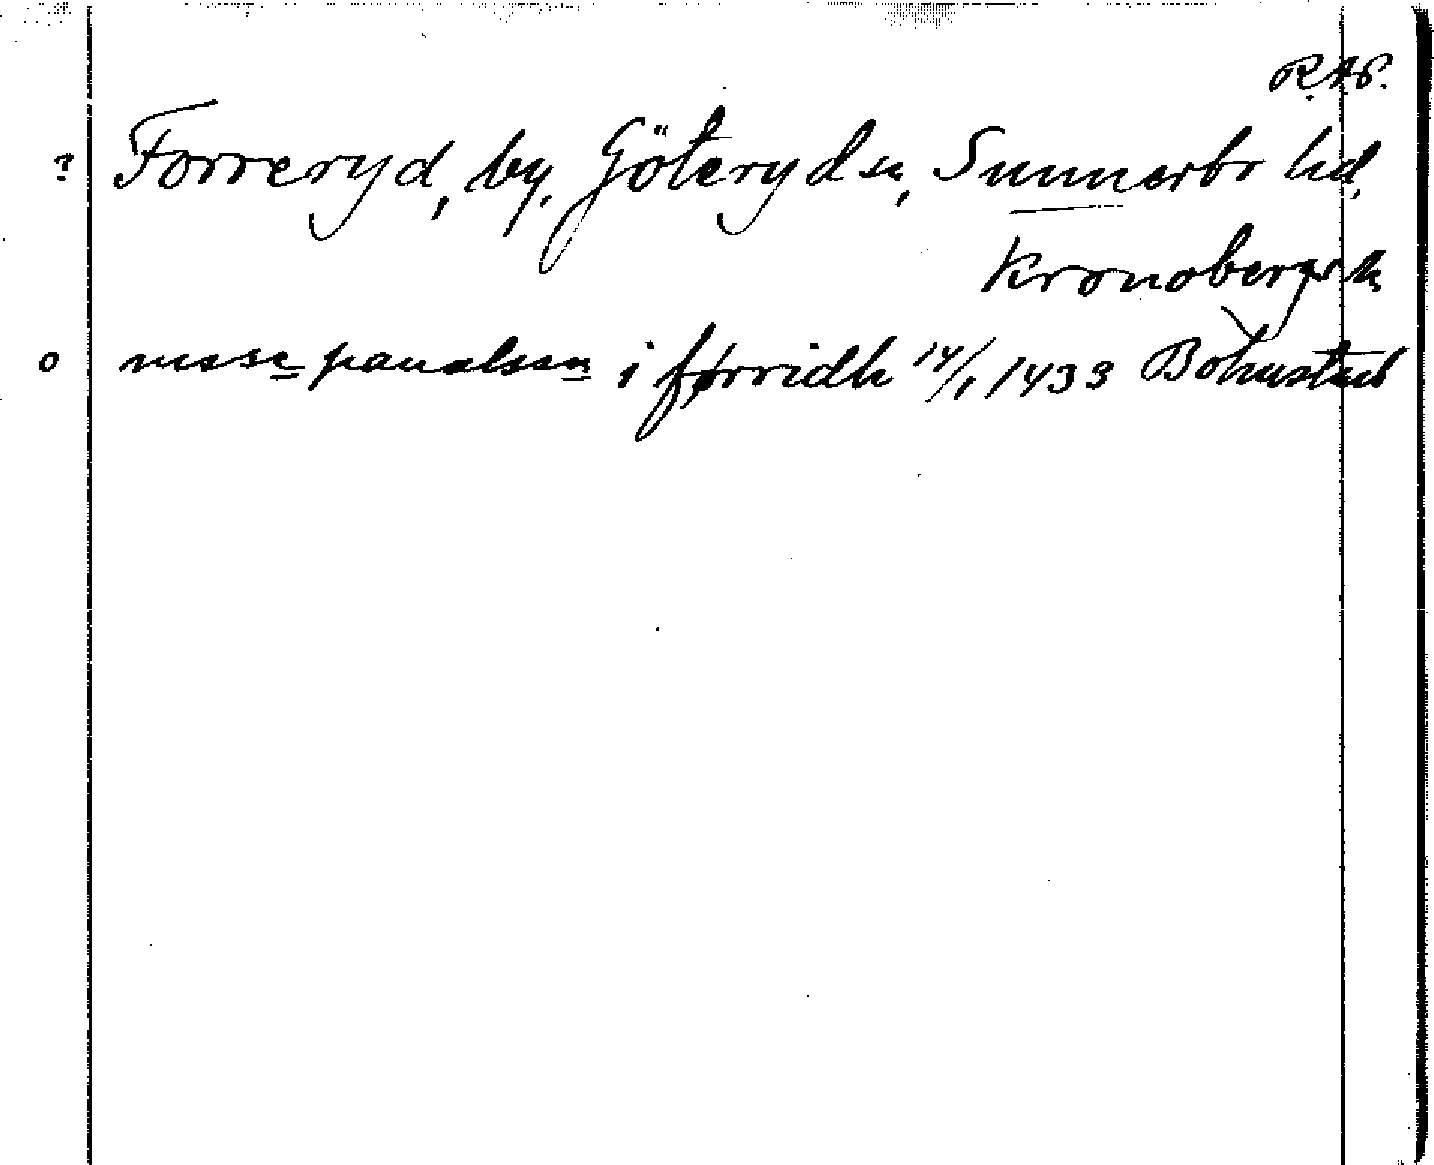 R.A.P.
? Forreryd, by, Göteryd sn, Sunnerbo hd,
Kronobergs l.
o nisse pauælssen i førridh 14/1 1433 Bohusted